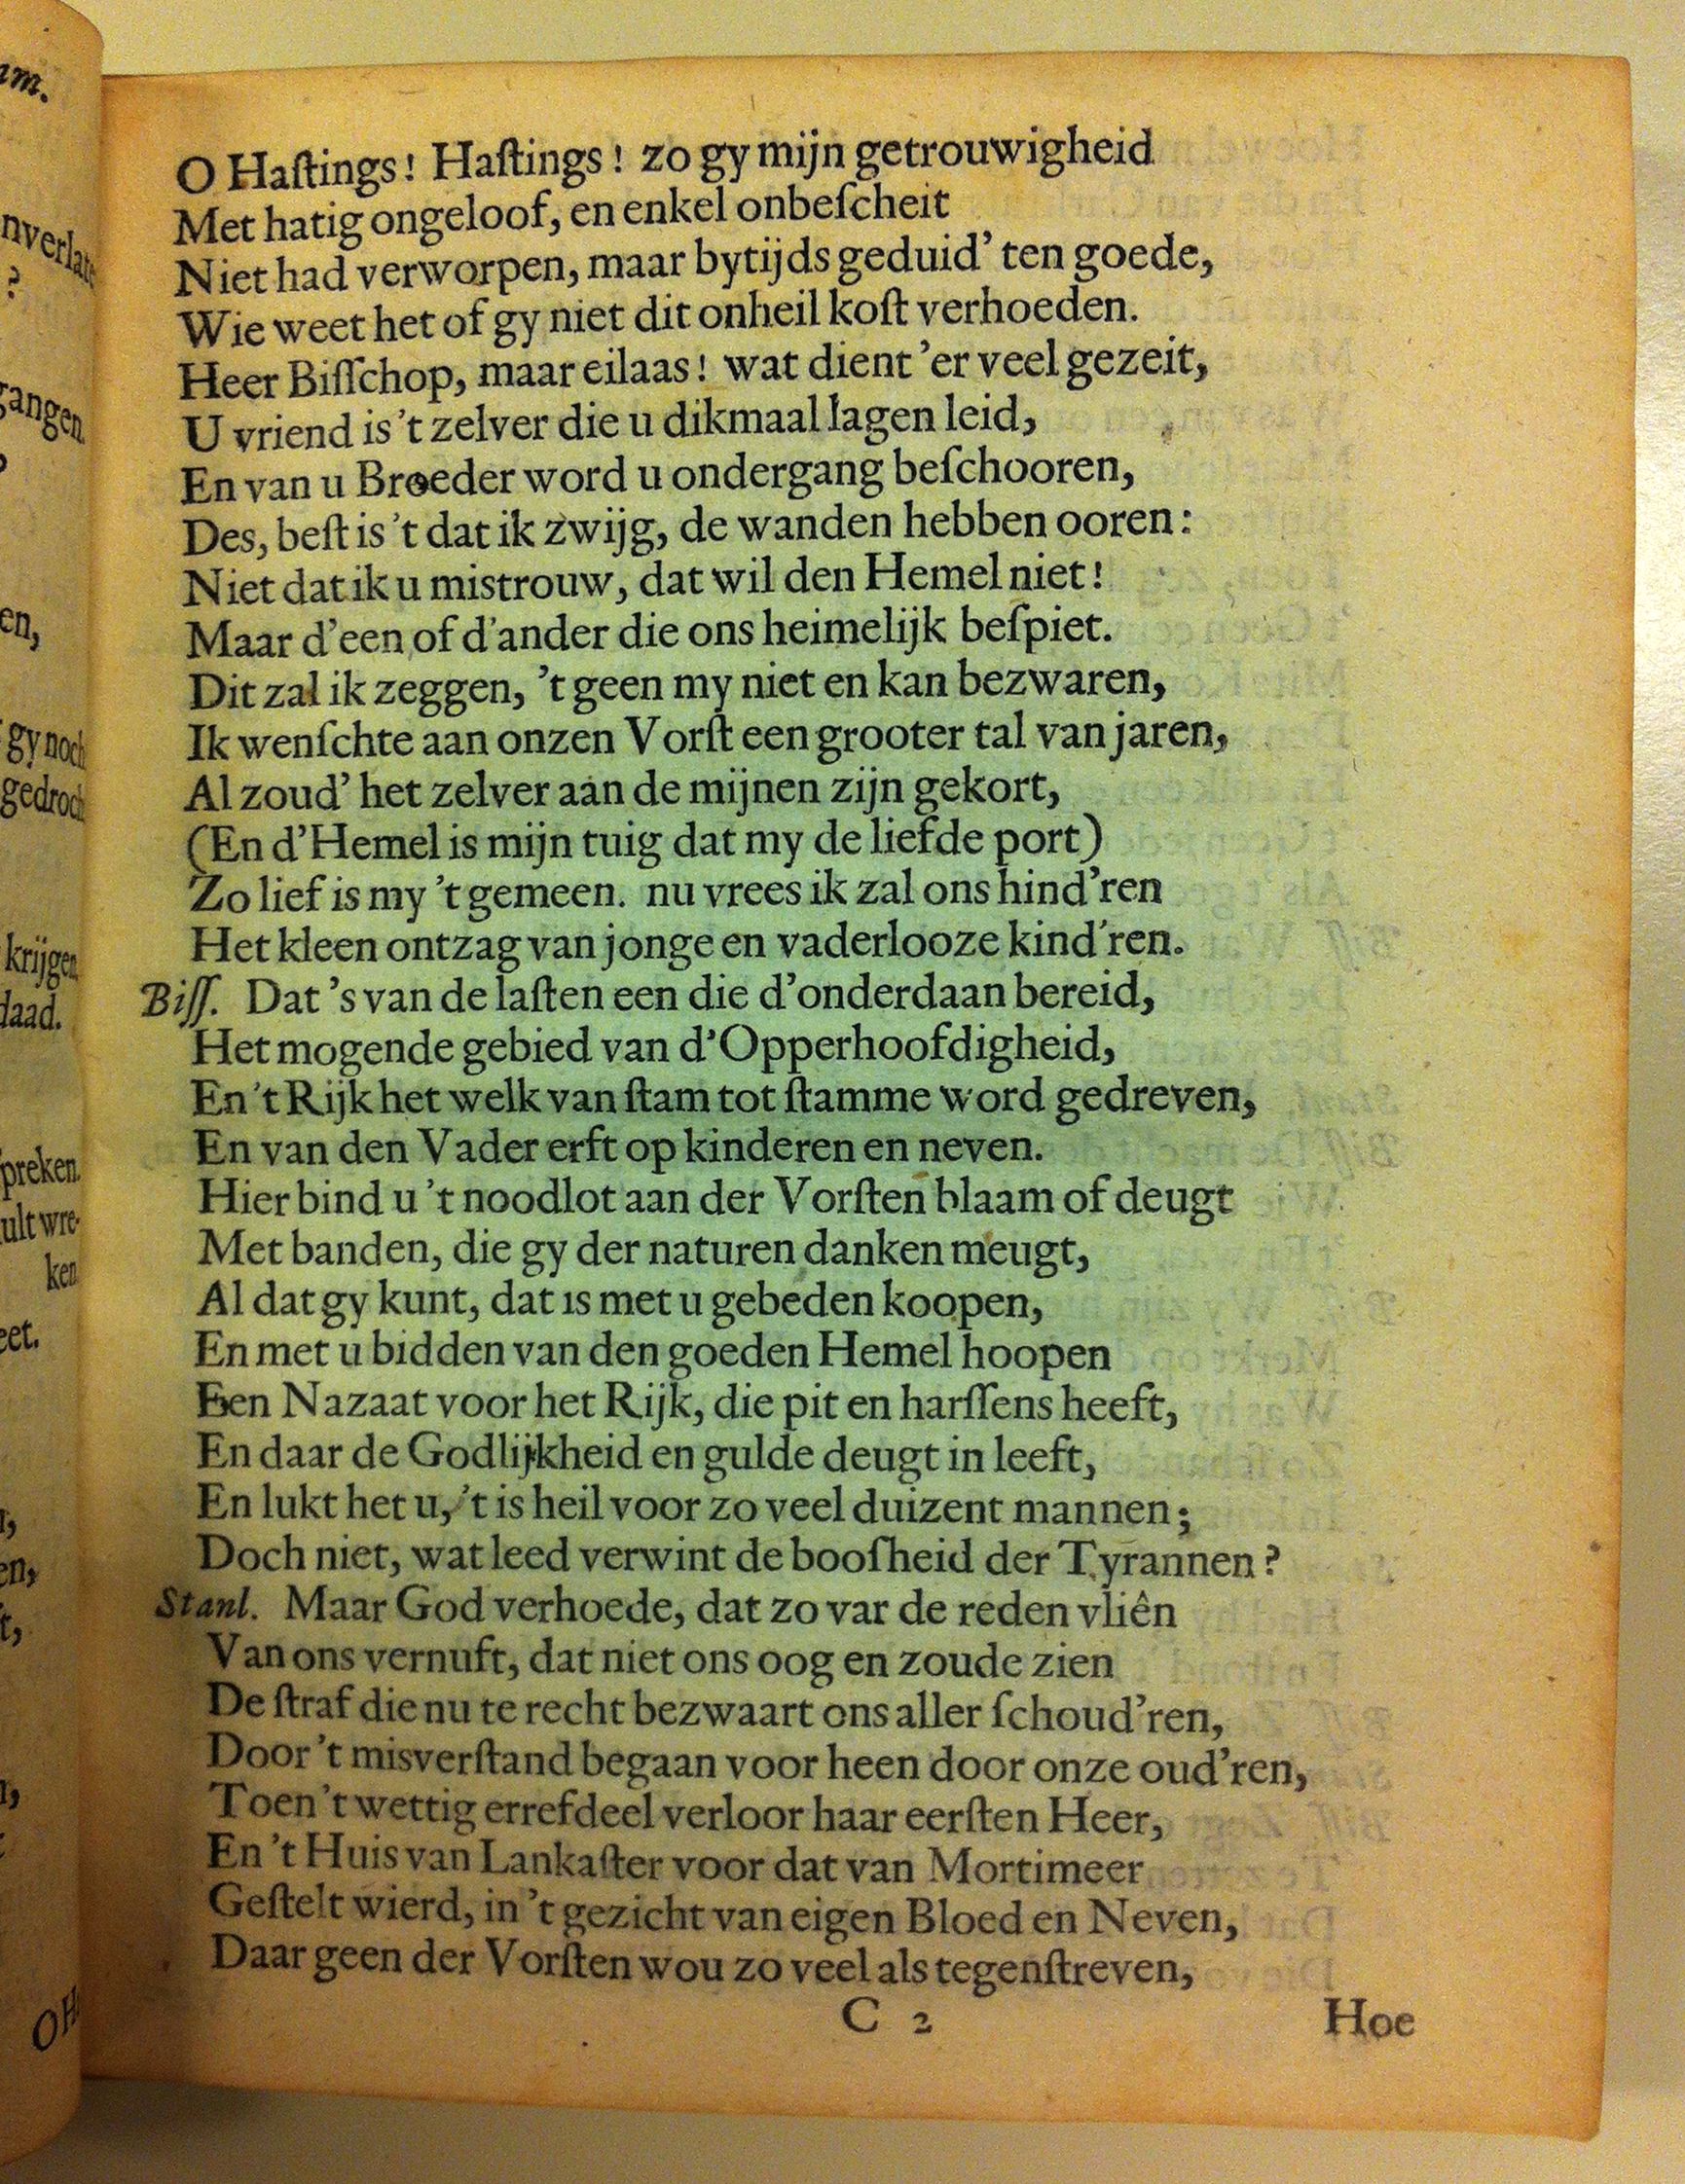 O Haſtings! Haſtings! zo gy mijn getrouwigheid
Met hatig ongeloof, en enkel onbeſcheit
Niet had verworpen, maar bytijds geduid’ ten goede,
Wie weet het of gy niet dit onheil koſt verhoeden.
Heer Biſſchop, maar eilaas! wat dient ’er veel gezeit,
U vriend is ’t zelver die u dikmaal lagen leid,
En van u Broeder word u ondergang beſchooren,
Des, beſt is ’t dat ik zwijg, de wanden hebben ooren:
Niet dat ik u mistrouw, dat wil den Hemel niet!
Maar d’een of d’ander die ons heimelijk beſpiet.
Dit zal ik zeggen, ’t geen my niet en kan bezwaren,
Ik wenſchte aan onzen Vorſt een grooter tal van jaren,
Al zoud’ het zelver aan de mijnen zijn gekort,
(En d’Hemel is mijn tuig dat my de liefde port)
Zo lief is my ’t gemeen. nu vrees ik zal ons hind’ren
Het kleen ontzag van jonge en vaderlooze kind’ren.
Biſſ. Dat ’s van de laſten een die d’onderdaan bereid,
Het mogende gebied van d’Opperhoofdigheid,
En ’t Rijk het welk van ſtam tot ſtamme word gedreven,
En van den Vader erft op kinderen en neven.
Hier bind u ’t noodlot aan der Vorſten blaam of deugt
Met banden, die gy der naturen danken meugt,
Al dat gy kunt, dat is met u gebeden koopen,
En met u bidden van den goeden Hemel hoopen
Een Nazaat voor het Rijk, die pit en harſſens heeft,
En daar de Godlijkheid en gulde deugt in leeft,
En lukt het u, ’t is heil voor zo veel duizent mannen;
Doch niet, wat leed verwint de boosheid der Tyrannen?
Stanl. Maar God verhoede, dat zo var de reden vliên
Van ons vernuft, dat niet ons oog en zoude zien
De ſtraf die nu te recht bezwaart ons aller ſchoud’ren,
Door ’t misverſtand begaan voor heen door onze oud’ren,
Toen ’t wettig errefdeel verloor haar eerſten Heer,
En ’t Huis van Lankaſter voor dat van Mortimeer
Geſtelt wierd, in ’t gezicht van eigen Bloed en Neven,
Daar geen der Vorſten wou zo veel als tegenſtreven,
C 2 Hoe